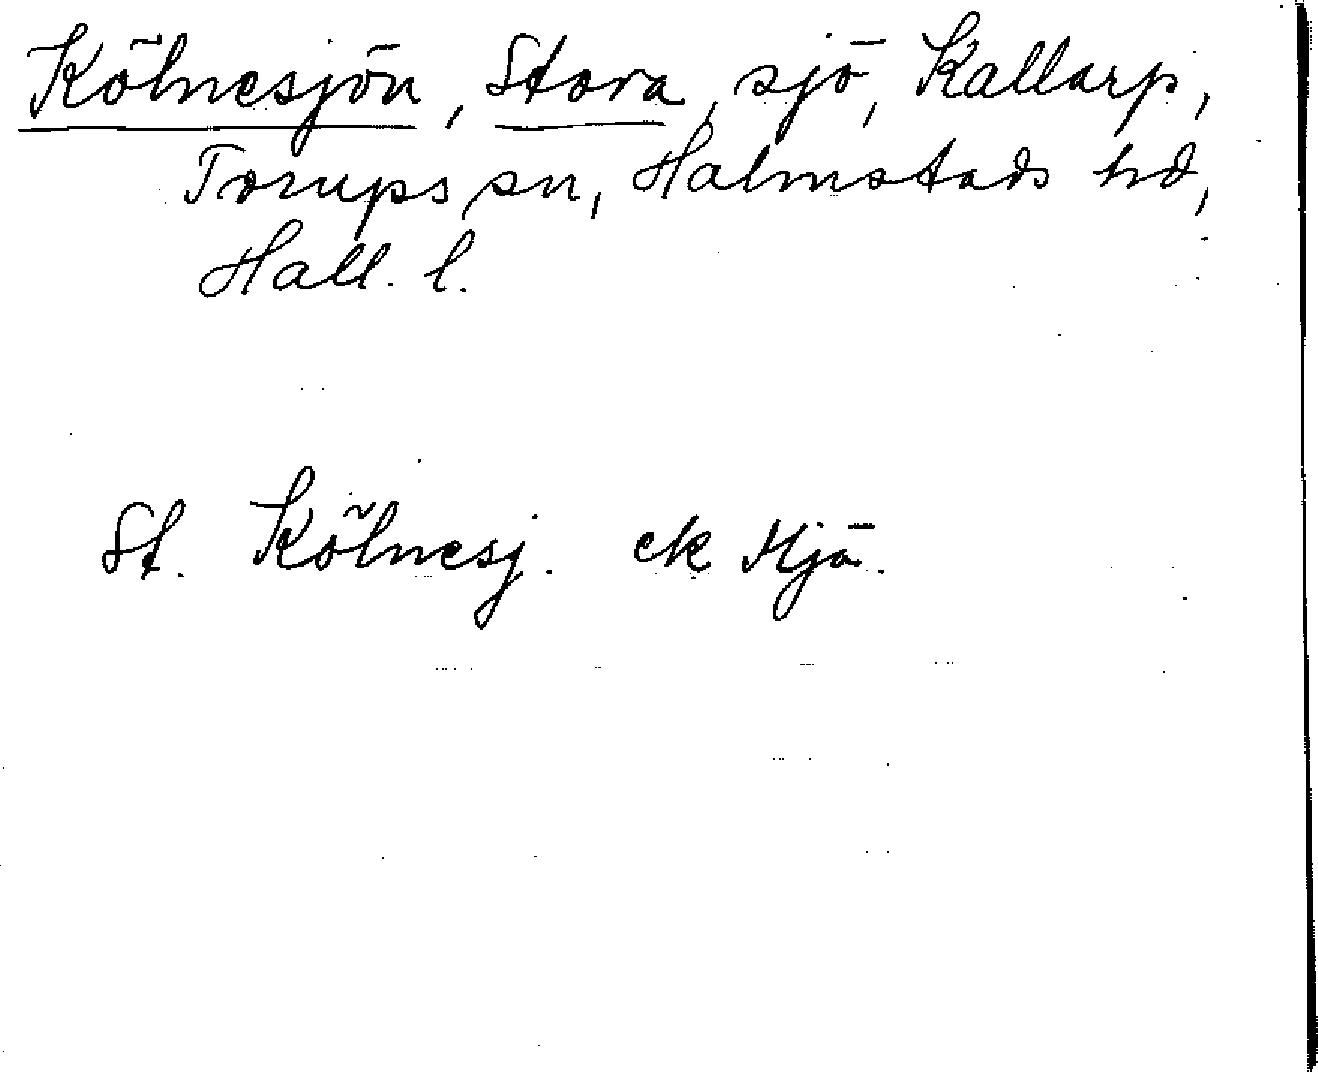 Kölnesjön, Stora, sjö, Kallarp,
Torups sn, Halmstads hd,
Hall. l.
St. Kölnesj. ek Hjö.